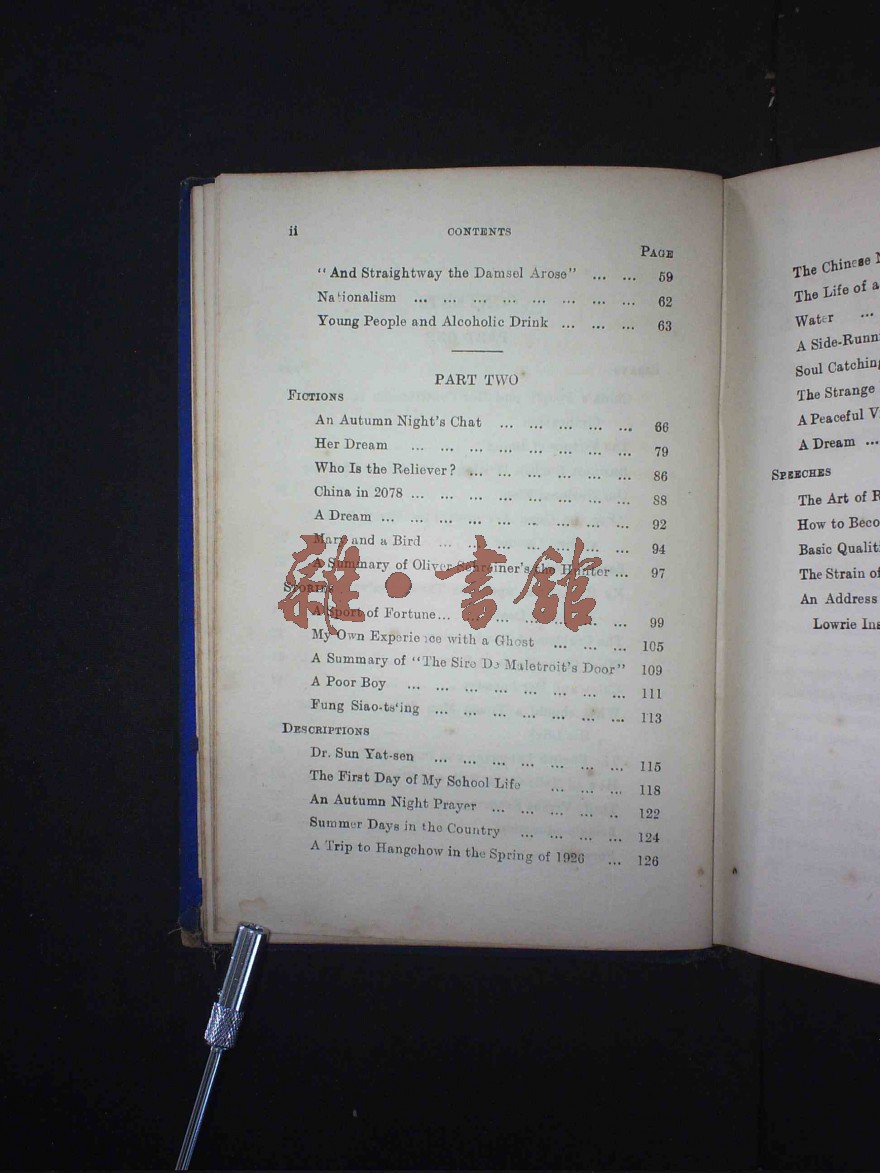 ii CONTENTS
PAGE
"And Straightway the Damsel Arose" ... ... 59
Nationalism ... ... ... ... ... ... ... ... 62
Young People and Alcoholic Drink ... ... ... 63
PART TWO
FICTIONS
An Autumn Night's Chat ... ... ... ... ... 66
Her Dream ... ... ... ... ... ... ... ... 79
Who Is the Reliever? ... ... ... ... ... ... 86
China in 2078 ... ... ... ... ... ... ... ... 88
A Dream ... ... ... ... ... ... ... ... ... 92
Mary and a Bird ... ... ... ... ... ... ... 94
A Summary of Oliver Schreiner's the Hunter ... 97
STORIES
A Sport of Fortune... ... ... ... ... ... ... 99
My Own Experience with a Ghost ... ... ... 105
A Summary of "The Sire De Maletroit's Door" 109
A Poor Boy ... ... ... ... ... ... ... ... 111
Fung Siao-ts'ing ... ... ... ... ... ... ... 113
DESCRIPTIONS
Dr. Sun Yat-sen ... ... ... ... ... ... ... 115
The First Day of My School Life ... ... ... 118
An Autumn Night Prayer ... ... ... ... .. 122
Summer Days in the Country ... ... ... ... 124
A Trip to Hangchow in the Spring of 1926 ... 126
雜·書館
The Chinese
The Life of a
Water ...
A Side-
Soul Catching
The Strange
A Peaceful
A Dream ...
SPEECHES
The Art of
How to
Basic
The Strain of
An Address
Lowrie